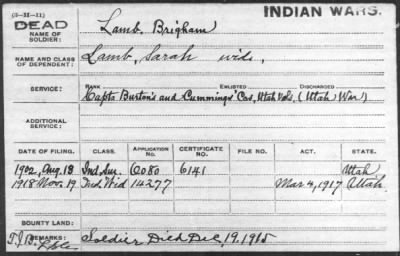 (3-35-11)
DEAD
INDIAN WARS.
NAME OF SOLDIER: Lamb, Brigham
NAME AND CLASS OF DEPENDENT: Lamb, Sarah wid.
SERVICE: RANK ENLISTED DISCHARGED
Capts. Burton's and Cummings' Cos, Utah Vols. (Utah War)
ADDITIONAL SERVICE:
DATE OF FILING. CLASS. APPLICATION NO. CERTIFICATE NO. FILE NO. ACT. STATE.
1902, Aug. 18 Ind. Sur. 6080 6141 Utah
1918 Nov. 19 Ind. Wid 14277 Mar 4, 1917 Utah.
BOUNTY LAND:
REMARKS: Soldier Died Dec, 19. 1915